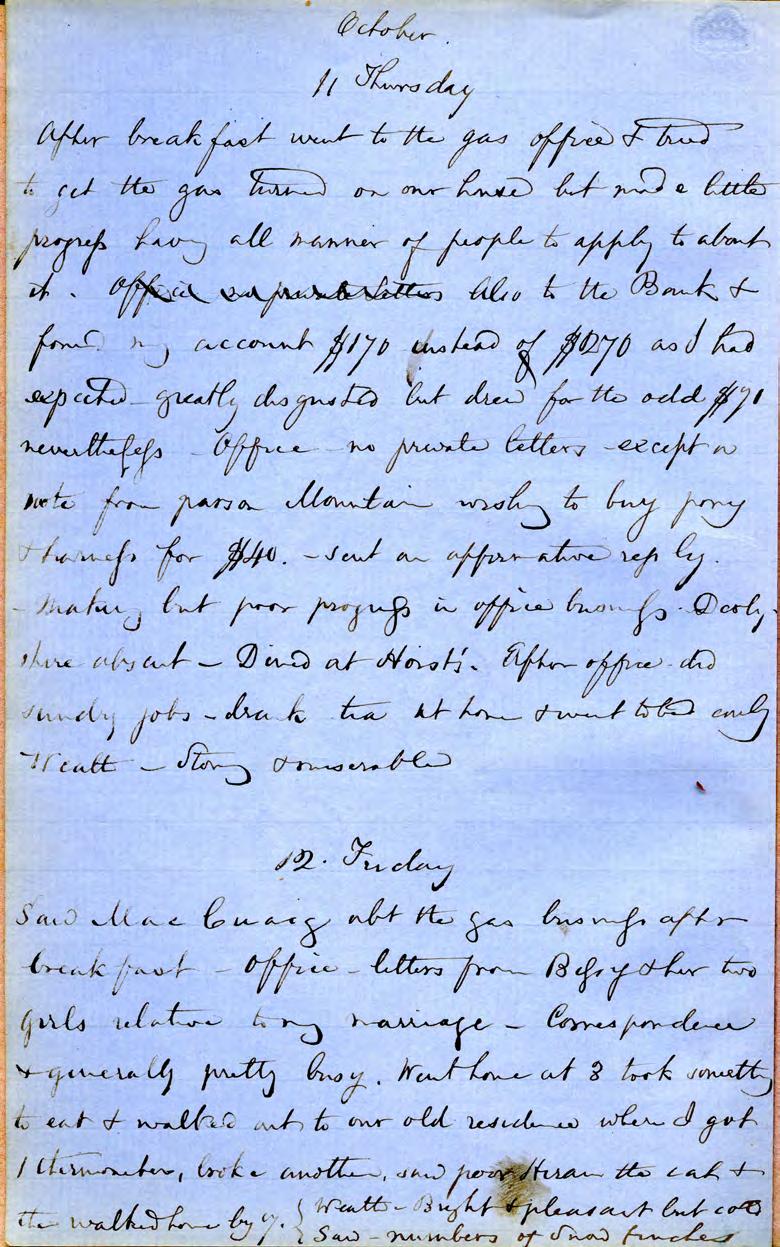 October.
11 Thursday
After breakfast went to the gas office & tried
to get the gas turned on our house but made little
progress having all manner of people to apply to about
it. Office no private letters Also to the Bank &
found my account $170 instead of $270 as I had
expected - greatly disgusted but drew for the odd $70
nevertheless - Office - no private letters - except a
note from parson Mountain wishing to buy pony
& harness for $40. - sent an affirmative reply.
- Making but poor progress in office business - Derby
shire absent - Dined at Horst's. After office did
sundry jobs - drank tea at home & went to bed early
Weatr - Stormy & miserable
12. Friday
Saw MacCuaig abt the gas business after
breakfast - Office - letters from Bessy & her two
girls relative to my marriage - Correspondence
& generally pretty busy. Went home at 3 took something
to eat & walked out to our old residence where I got
1 thermometer, broke another, saw poor Hiram the cat &
then walked home by 7. { Weatr - Bright & pleasant but cold
Saw - numbers of Snow finches